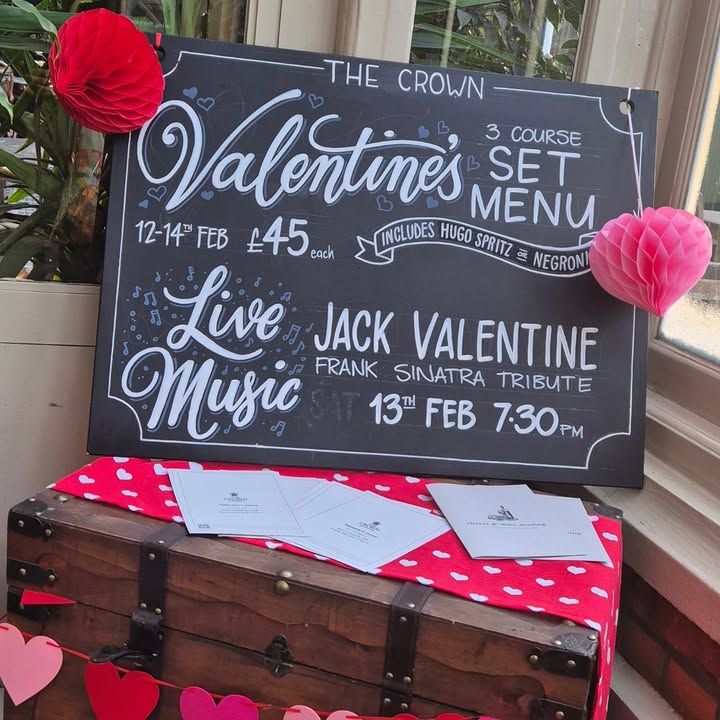 THE CROWN
Valentine's
3 COURSE
SET
MENU
12-14TH FEB £45 each
INCLUDES HUGO SPRITZ OR NEGRONI
Live
Music
JACK VALENTINE
FRANK SINATRA TRIBUTE
SAT 13TH FEB 7:30PM
CROWN
CROWN
cheese & wine evening